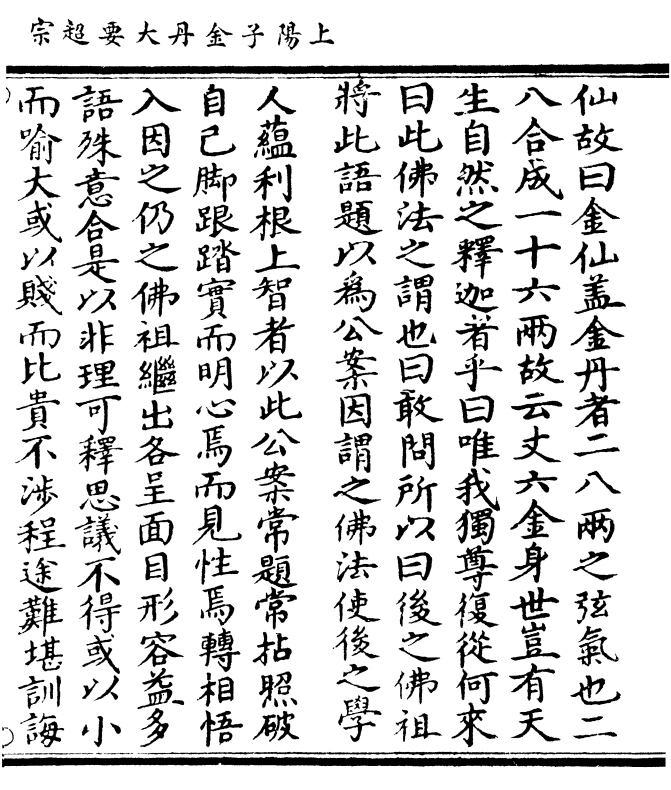 上陽子金丹大要超宗
仙故曰金仙盖金丹者二八兩之弦氣也二
八合成一十六兩故云丈六金身世豈有天
生自然之釋迦者乎曰唯我獨尊復從何來
曰此佛法之謂也曰敢問所以曰後之佛祖
將此語題以爲公案因謂之佛法使後之學
人蘊利根上智者以此公案常題常拈照破
自己脚跟踏實而明心焉而見性焉轉相悟
入因之仍之佛祖繼出各呈面目形容益多
語殊意合是以非理可釋思議不得或以小
而喻大或以賤而比貴不涉程途難堪訓誨